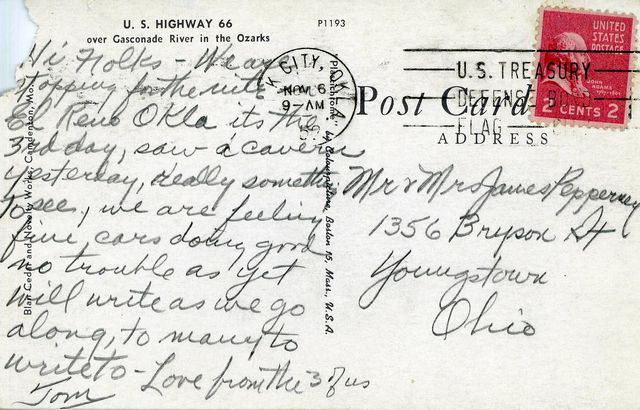 U. S. HIGHWAY 66
over Gasconade River in the Ozarks
P1193
Hi Folks - We are
stopping for the nite
El Reno Okla its the
3rd day, saw a cavern
yesterday, really something
to see, we are feeling
fine cars doing good
no trouble as yet
will write as we go
along, to many to
write to - Love from the 3 of us
Tom
Blair Cedar and Novelty Works, Camdenton, Mo.
"Plastichrome" by Colourpicture, Boston 15, Mass., U.S.A.
K CITY, OKLA.
NOV 6
9-AM
U.S. TREASURY
DEFENSE BOND
FLAG
UNITED
STATES
POSTAGE
JOHN
ADAMS
2 CENTS 2
Post Card
ADDRESS
Mr & Mrs James Pepperney
1356 Bryson St
Youngstown
Ohio